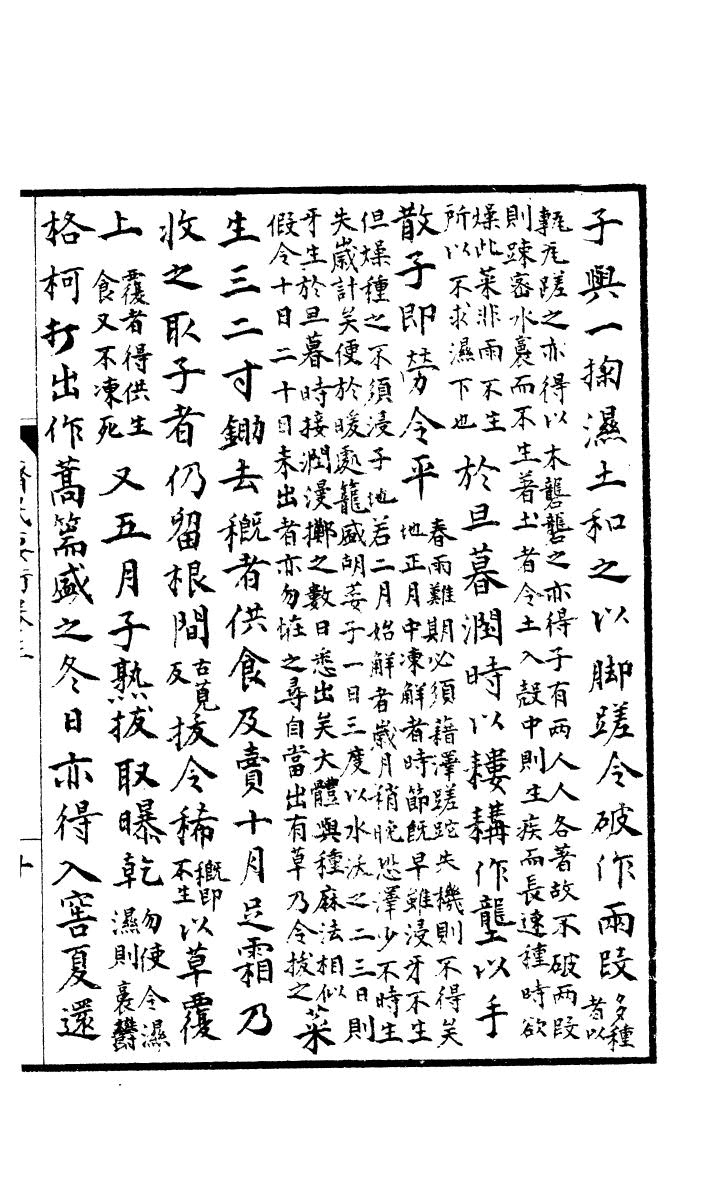 子與一掬濕土和之以脚蹉令破作兩叚多種者以
甎瓦蹉之亦得以木礱礱之亦得子有兩人人各著故不破兩叚
則踈密水裛而不生著土者令土入殼中則生疾而長速種時欲
燥此菜非雨不生所以不求濕下也於旦暮潤時以耬耩作壟以手
散子即勞令平春雨難期必須籍澤蹉跎失機則不得矣地正月中凍解者時節旣早雖浸牙不生
但燥種之不須浸子地若二月始解者歲月稍晚恐澤少不時生
失歲計矣便於暖處籠盛胡荽子一日三度以水沃之二三日則
牙生於旦暮時接潤漫擲之數日悉出矣大體與種麻法相似
假令十日二十日未出者亦勿怪之尋自當出有草乃令拔之菜
生三二寸鋤去穊者供食及賣十月足霜乃
收之取子者仍留根間古莧反拔令稀穊即不生以草覆
上覆者得供生食又不凍死又五月子熟拔取曝乾勿使令濕濕則裛欝
格柯打出作蒿篅盛之冬日亦得入窖夏還